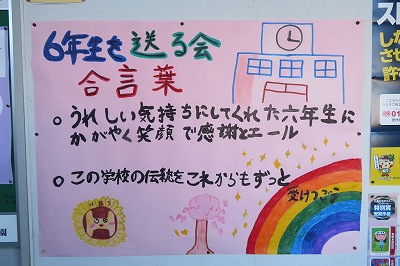 6年生を送る会
合言葉
うれしい気持ちにしてくれた六年生に
かがやく笑顔で感謝とエール
この学校の伝統をこれからもずっと
受けつごう
HBS
特別賞